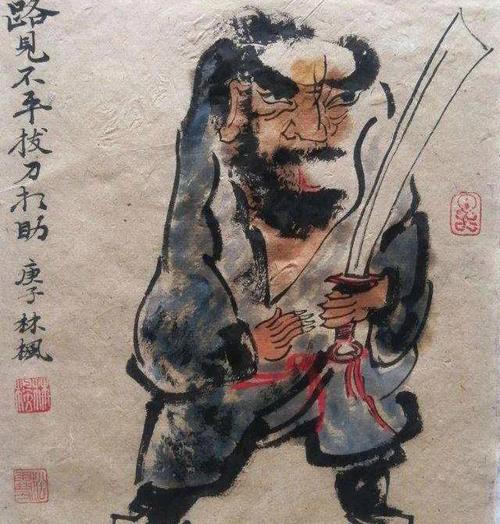 路見不平拔刀相助
庚子林楓